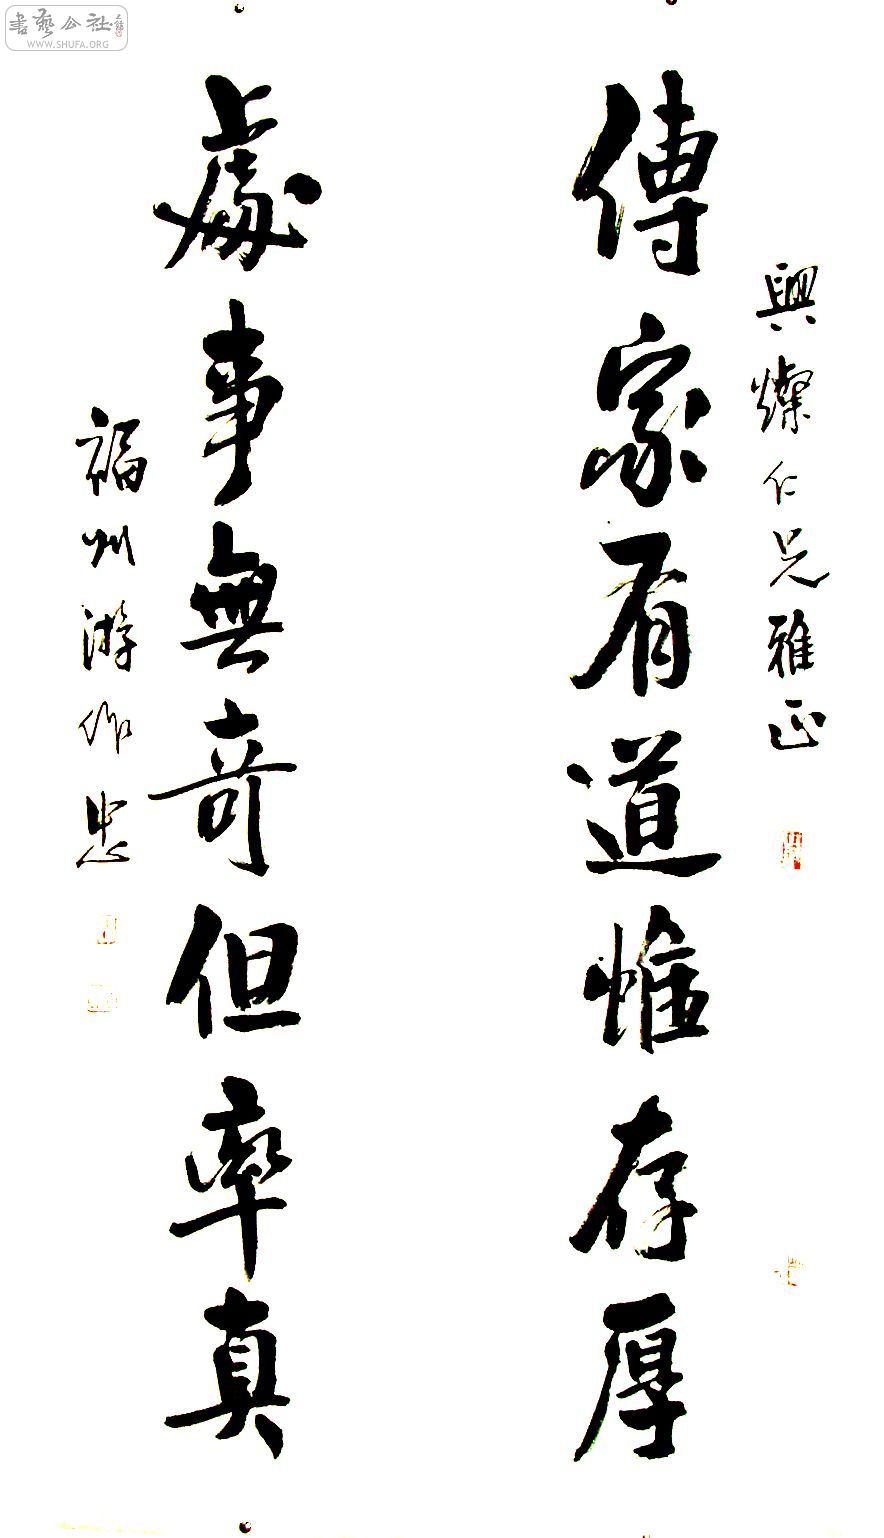 書藝公社
WWW.SHUFA.ORG
興燦仁兄雅正
傳家有道惟存厚
處事無奇但率真
福州游作忠